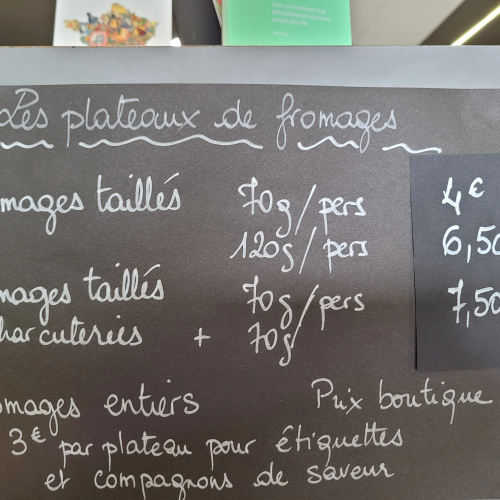 Les plateaux de fromages
mages taillés 70g/pers 4€
120g/pers 6,50
mages taillés 70g/pers 7,50
harcuteries + 70g
omages entiers Prix boutique
3€ par plateau pour étiquettes
et compagnons de saveur